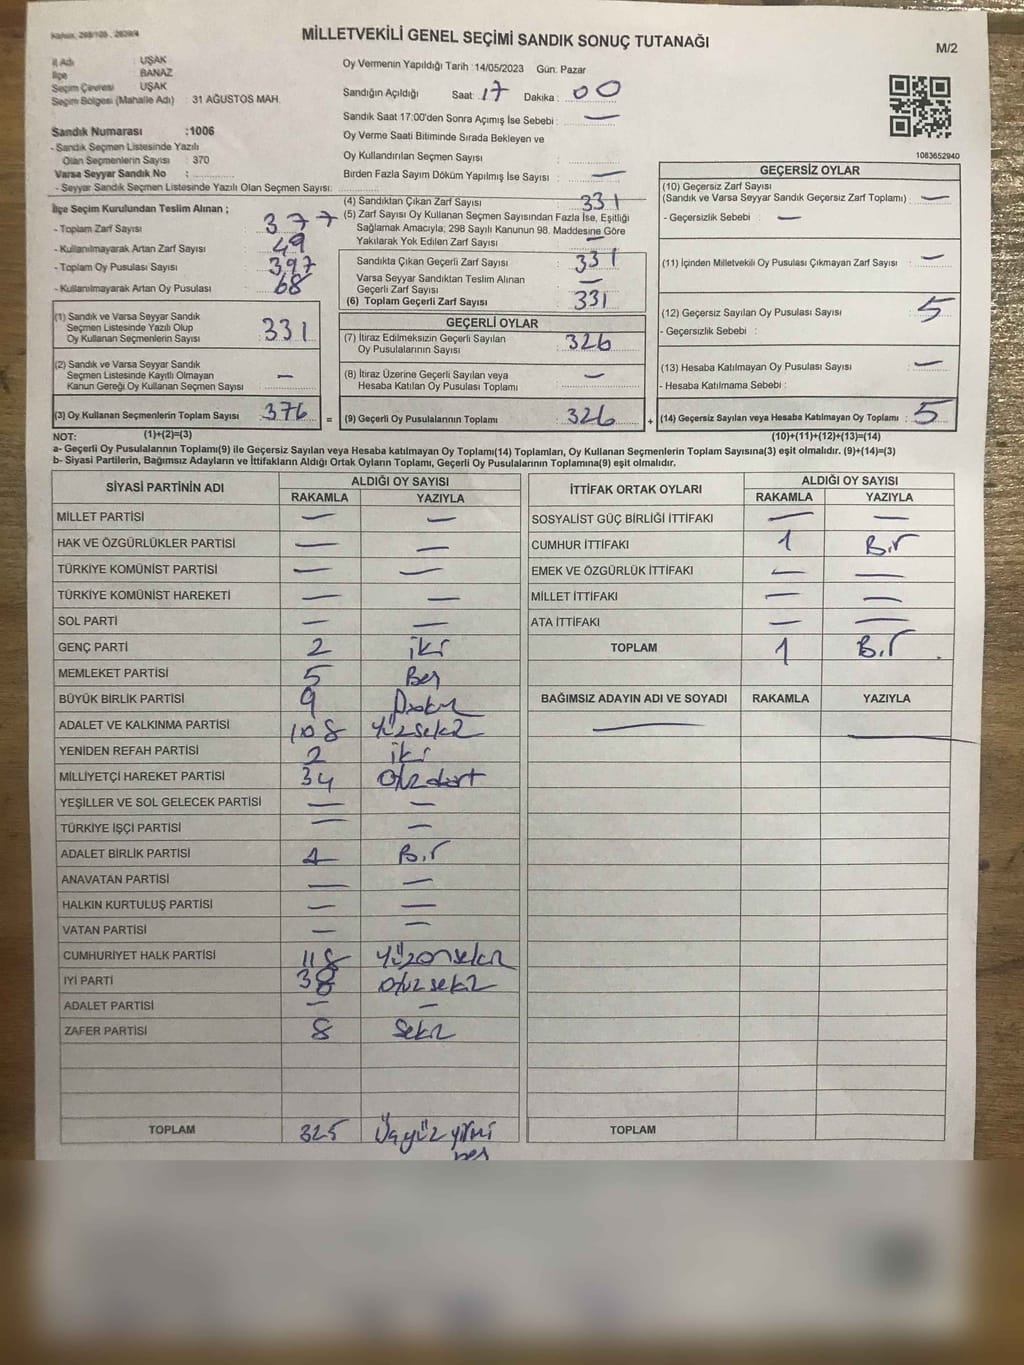 Kanun, 298/105 , 2839/4
MİLLETVEKİLİ GENEL SEÇİMİ SANDIK SONUÇ TUTANAĞI
M/2
İl Adı : UŞAK
İlçe : BANAZ
Seçim Çevresi : UŞAK
Seçim Bölgesi (Mahalle Adı) : 31 AĞUSTOS MAH.
Sandık Numarası :1006
- Sandık Seçmen Listesinde Yazılı
Olan Seçmenlerin Sayısı : 370
Varsa Seyyar Sandık No :
- Seyyar Sandık Seçmen Listesinde Yazılı Olan Seçmen Sayısı:
Oy Vermenin Yapıldığı Tarih :14/05/2023 Gün: Pazar
Sandığın Açıldığı Saat: 17 Dakika : 00
Sandık Saat 17:00'den Sonra Açımış İse Sebebi : —
Oy Verme Saati Bitiminde Sırada Bekleyen ve
Oy Kullandırılan Seçmen Sayısı :
Birden Fazla Sayım Döküm Yapılmış İse Sayısı : —
1083652940
İlçe Seçim Kurulundan Teslim Alınan ;
- Toplam Zarf Sayısı : 377
- Kullanılmayarak Artan Zarf Sayısı : 49
- Toplam Oy Pusulası Sayısı : 397
- Kullanılmayarak Artan Oy Pusulası : 68
(1) Sandık ve Varsa Seyyar Sandık
Seçmen Listesinde Yazılı Olup
Oy Kullanan Seçmenlerin Sayısı : 331
(2) Sandık ve Varsa Seyyar Sandık
Seçmen Listesinde Kayıtlı Olmayan
Kanun Gereği Oy Kullanan Seçmen Sayısı : —
(3) Oy Kullanan Seçmenlerin Toplam Sayısı : 376 =
(4) Sandıktan Çıkan Zarf Sayısı : 331
(5) Zarf Sayısı Oy Kullanan Seçmen Sayısından Fazla İse, Eşitliği
Sağlamak Amacıyla; 298 Sayılı Kanunun 98. Maddesine Göre
Yakılarak Yok Edilen Zarf Sayısı : —
Sandıkta Çıkan Geçerli Zarf Sayısı : 331
Varsa Seyyar Sandıktan Teslim Alınan
Geçerli Zarf Sayısı : —
(6) Toplam Geçerli Zarf Sayısı : 331
GEÇERLİ OYLAR
(7) İtiraz Edilmeksizin Geçerli Sayılan
Oy Pusulalarının Sayısı : 326
(8) İtiraz Üzerine Geçerli Sayılan veya
Hesaba Katılan Oy Pusulası Toplamı : —
(9) Geçerli Oy Pusulalarının Toplamı : 326 +
GEÇERSİZ OYLAR
(10) Geçersiz Zarf Sayısı
(Sandık ve Varsa Seyyar Sandık Geçersiz Zarf Toplamı) : —
- Geçersizlik Sebebi : —
(11) İçinden Milletvekili Oy Pusulası Çıkmayan Zarf Sayısı : —
(12) Geçersiz Sayılan Oy Pusulası Sayısı : 5
- Geçersizlik Sebebi :
(13) Hesaba Katılmayan Oy Pusulası Sayısı : —
- Hesaba Katılmama Sebebi :
(14) Geçersiz Sayılan veya Hesaba Katılmayan Oy Toplamı : 5
NOT: (1)+(2)=(3) (10)+(11)+(12)+(13)=(14)
a- Geçerli Oy Pusulalarının Toplamı(9) ile Geçersiz Sayılan veya Hesaba Katılmayan Oy Toplamı(14) Toplamları, Oy Kullanan Seçmenlerin Toplam Sayısına(3) eşit olmalıdır. (9)+(14)=(3)
b- Siyasi Partilerin, Bağımsız Adayların ve İttifakların Aldığı Ortak Oyların Toplamı, Geçerli Oy Pusulalarının Toplamına(9) eşit olmalıdır.
SİYASİ PARTİNİN ADI ALDIĞI OY SAYISI
RAKAMLA YAZIYLA
MİLLET PARTİSİ — —
HAK VE ÖZGÜRLÜKLER PARTİSİ — —
TÜRKİYE KOMÜNİST PARTİSİ — —
TÜRKİYE KOMÜNİST HAREKETİ — —
SOL PARTİ — —
GENÇ PARTİ 2 iki
MEMLEKET PARTİSİ 5 Beş
BÜYÜK BİRLİK PARTİSİ 9 Dokuz
ADALET VE KALKINMA PARTİSİ 108 Yüzsekiz
YENİDEN REFAH PARTİSİ 2 iki
MİLLİYETÇİ HAREKET PARTİSİ 34 Otuzdört
YEŞİLLER VE SOL GELECEK PARTİSİ — —
TÜRKİYE İŞÇİ PARTİSİ — —
ADALET BİRLİK PARTİSİ 1 Bir
ANAVATAN PARTİSİ — —
HALKIN KURTULUŞ PARTİSİ — —
VATAN PARTİSİ — —
CUMHURİYET HALK PARTİSİ 118 Yüzonsekiz
İYİ PARTİ 38 Otuzsekiz
ADALET PARTİSİ — —
ZAFER PARTİSİ 8 Sekiz
TOPLAM 325 Üçyüzyirmi
beş
İTTİFAK ORTAK OYLARI ALDIĞI OY SAYISI
RAKAMLA YAZIYLA
SOSYALİST GÜÇ BİRLİĞİ İTTİFAKI — —
CUMHUR İTTİFAKI 1 Bir
EMEK VE ÖZGÜRLÜK İTTİFAKI — —
MİLLET İTTİFAKI — —
ATA İTTİFAKI — —
TOPLAM 1 Bir
BAĞIMSIZ ADAYIN ADI VE SOYADI RAKAMLA YAZIYLA
— —
TOPLAM